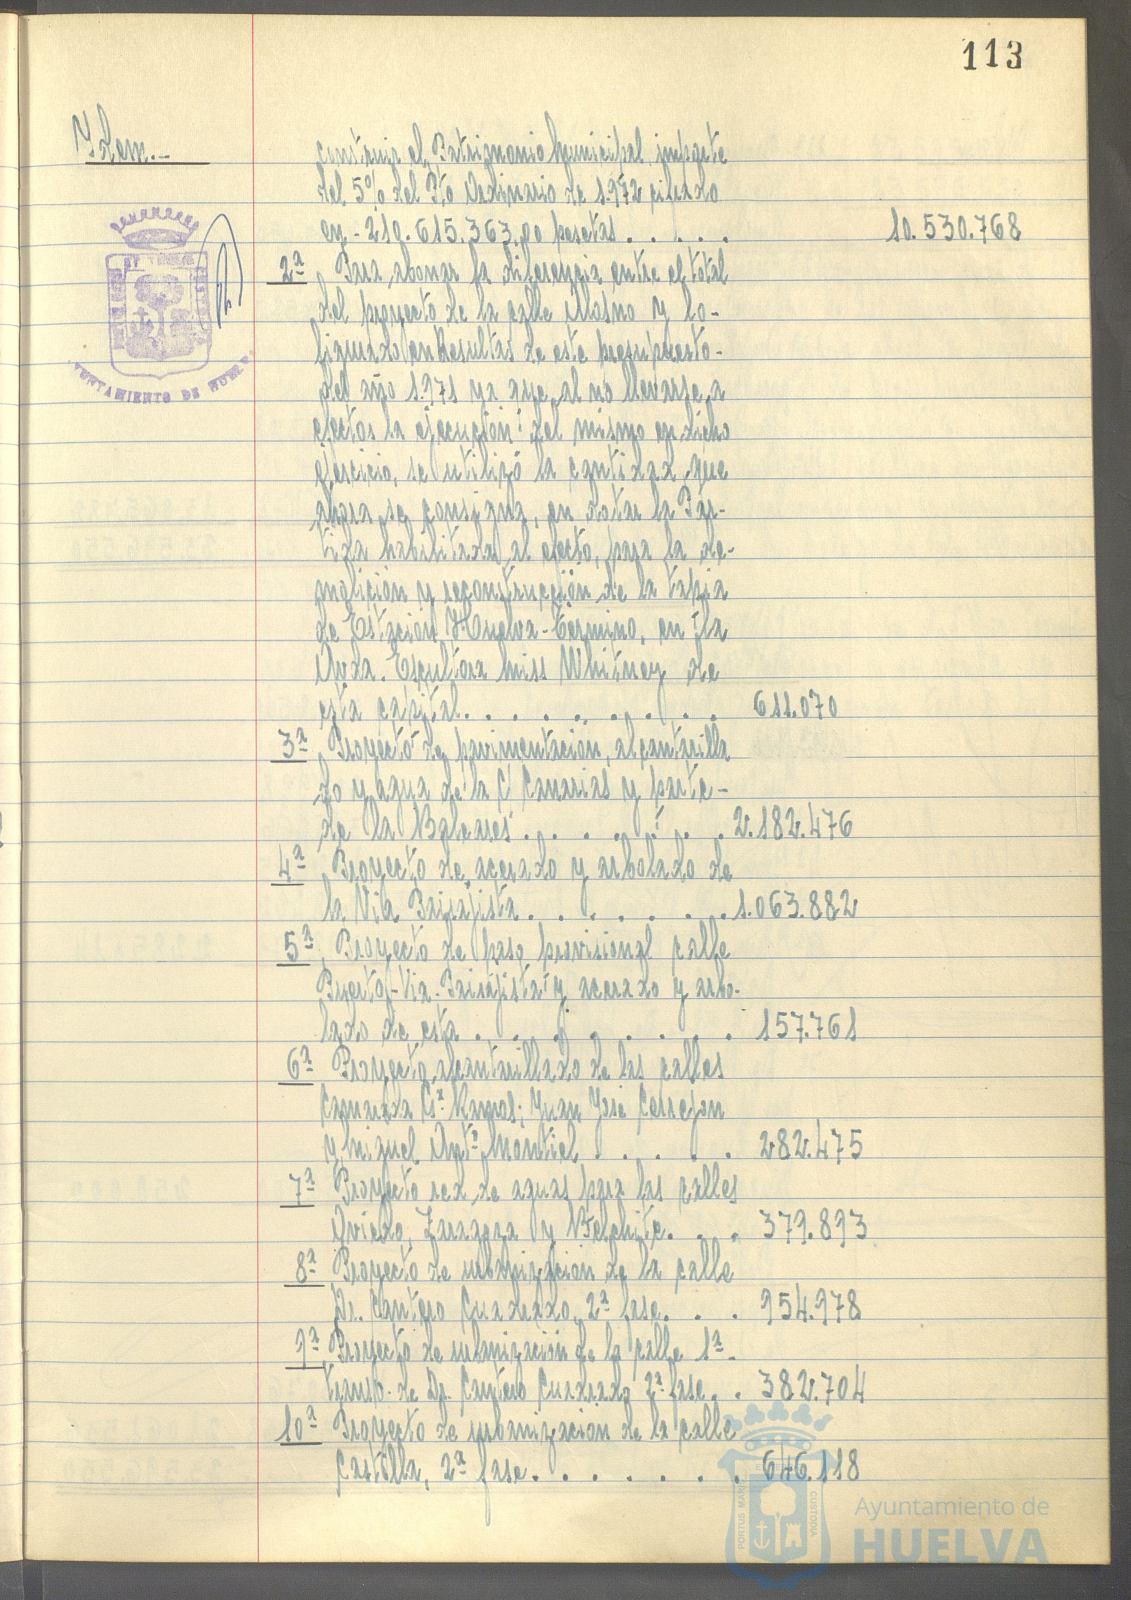 113
Ydem.-
constituir el Patrimonio Municipal, importe
del 5% del Pto Ordinario de 1.972 cifrado
en - 210.615.363,00 pesetas . . . . . 10.530.768
2ª Para abonar la diferencia entre el total
del proyecto de la calle Alosno y lo-
liquidado en Resultas de este presupuesto-
del año 1.971 ya que, al no llevarse a
efectos la ejecución del mismo en dicho
ejercicio, se utilizó la cantidad que
ahora se consigna, en dotar la Par-
tida habilitada al efecto, para la de-
molición y reconstrucción de la tapia
de Estación Huelva-Término, en la
Avda. Escultora Miss Whitney de
esta capital. . . . . . . . . 611.070
3ª Proyecto de pavimentación, alcantarilla
do y agua de la C/ Canarias y parte-
de la Baleares . . . . . . . 2.182.476
4ª Proyecto de acerado y arbolado de
la Vía Paisajista . . . . . . . 1.063.882
5ª Proyecto de paso provisional calle
Puerto-Vía-Paisajista y acerado y arbo-
lado de esta . . . . . . . 157.761
6ª Proyecto alcantarillado de las calles
Camarada Cª Ramos; Juan José Cerrejon
y Miguel Antº Montiel . . . . . 282.475
7ª Proyecto red de aguas para las calles
Oviedo, Zaragoza y Belchite. . . . 379.893
8ª Proyecto de urbanización de la calle
Dr. Cantero Cuadrado, 2ª fase. . . . 954.978
9ª Proyecto de urbanización de la calle 1ª-
transv. de Dr. Cantero Cuadrado 2ª fase. . 382.704
10ª Proyecto de urbanización de la calle
Castilla, 2ª fase . . . . . . . 646.118
AYUNTAMIENTO DE HUELVA
PORTUS MARIS
CUSTODIA
Ayuntamiento de
HUELVA